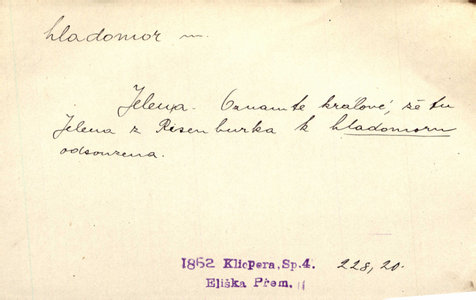 hladomor m.
Jelena. Oznamte králové, že tu
Jelena z Risenburka k hladomoru
odsouzena.
1862 Klicpera, Sp.4. 228, 20.
Eliška Přem.